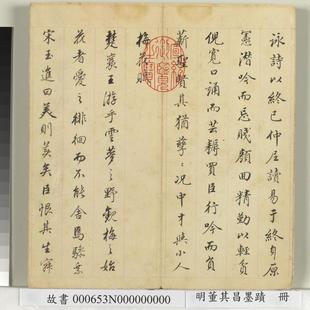 詠詩以終已仲尼讀易于終身原
憲潛吟而忘賤顏回精勤以輕貧
倪寬口誦而芸耨買臣行吟而負
薪聖賢其猶孳々況中才與小人
梅花賦
楚襄王游乎雲夢之野觀梅之始
花者愛之徘徊而不能舍焉驂乘
宋玉進曰美則美矣臣恨其生寂
故書 000653N000000000 明董其昌墨蹟 冊